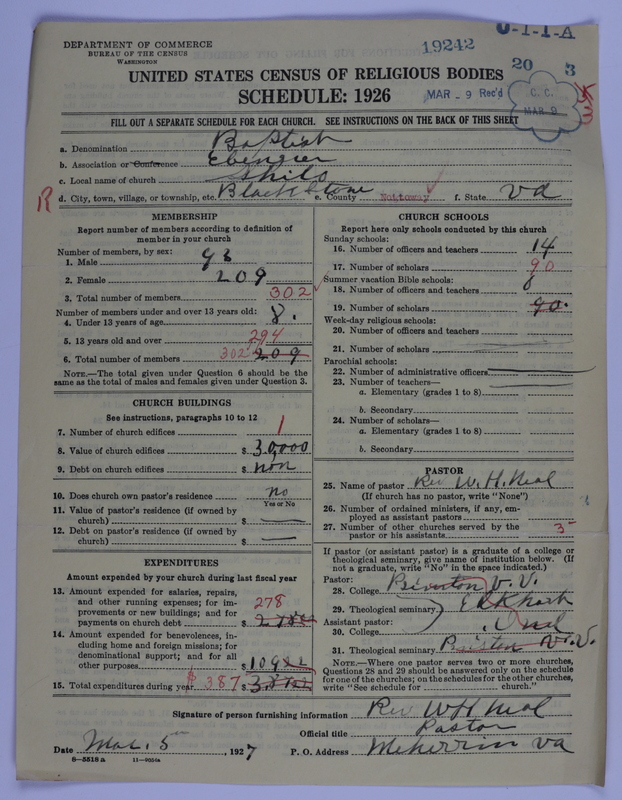 0-1-1-A
DEPARTMENT OF COMMERCE
BUREAU OF THE CENSUS
WASHINGTON
19242
20 3
UNITED STATES CENSUS OF RELIGIOUS BODIES
SCHEDULE: 1926
MAR - 9 Rec'd
C. C.
MAR 9
FILL OUT A SEPARATE SCHEDULE FOR EACH CHURCH. SEE INSTRUCTIONS ON THE BACK OF THIS SHEET
a. Denomination Baptist
b. Association or Conference Ebenezer
c. Local name of church Shilo
R d. City, town, village, or township, etc. Blackstone e. County Nottoway f. State Va
MEMBERSHIP
Report number of members according to definition of
member in your church
Number of members, by sex:
1. Male 93
2. Female 209
3. Total number of members 302
Number of members under and over 13 years old:
4. Under 13 years of age 8.
5. 13 years old and over 294
6. Total number of members 302 209
NOTE.—The total given under Question 6 should be the
same as the total of males and females given under Question 3.
CHURCH BUILDINGS
See instructions, paragraphs 10 to 12
7. Number of church edifices 1
8. Value of church edifices $ 30,000
9. Debt on church edifices $ non
10. Does church own pastor's residence no
Yes or No
11. Value of pastor's residence (if owned by
church) $
12. Debt on pastor's residence (if owned by
church) $
EXPENDITURES
Amount expended by your church during last fiscal year
13. Amount expended for salaries, repairs,
and other running expenses; for im-
provements or new buildings; and for
payments on church debt $
278
14. Amount expended for benevolences, in-
cluding home and foreign missions; for
denominational support; and for all
other purposes $
15. Total expenditures during year $ 387
CHURCH SCHOOLS
Report here only schools conducted by this church
Sunday schools:
16. Number of officers and teachers 14
17. Number of scholars 90
Summer vacation Bible schools:
18. Number of officers and teachers
19. Number of scholars 90.
Week-day religious schools:
20. Number of officers and teachers
21. Number of scholars
Parochial schools:
22. Number of administrative officers
23. Number of teachers—
a. Elementary (grades 1 to 8)
b. Secondary
24. Number of scholars—
a. Elementary (grades 1 to 8)
b. Secondary
PASTOR
25. Name of pastor Rev W. H. Neal
(If church has no pastor, write "None")
26. Number of ordained ministers, if any, em-
ployed as assistant pastors
27. Number of other churches served by the
pastor or his assistants 3
If pastor (or assistant pastor) is a graduate of a college or
theological seminary, give name of institution below. (If
not a graduate, write "No" in the space indicated.)
Pastor:
28. College
29. Theological seminary
Assistant pastor:
30. College
31. Theological seminary
NOTE.—Where one pastor serves two or more churches,
Questions 28 and 29 should be answered only on the schedule
for one of the churches; on the schedules for the other churches,
write "See schedule for church."
Signature of person furnishing information Rev W H Neal
Official title Pastor
Date Mar. 5, 1927 P. O. Address Meherrin Va
8—5518 a 11—9054a